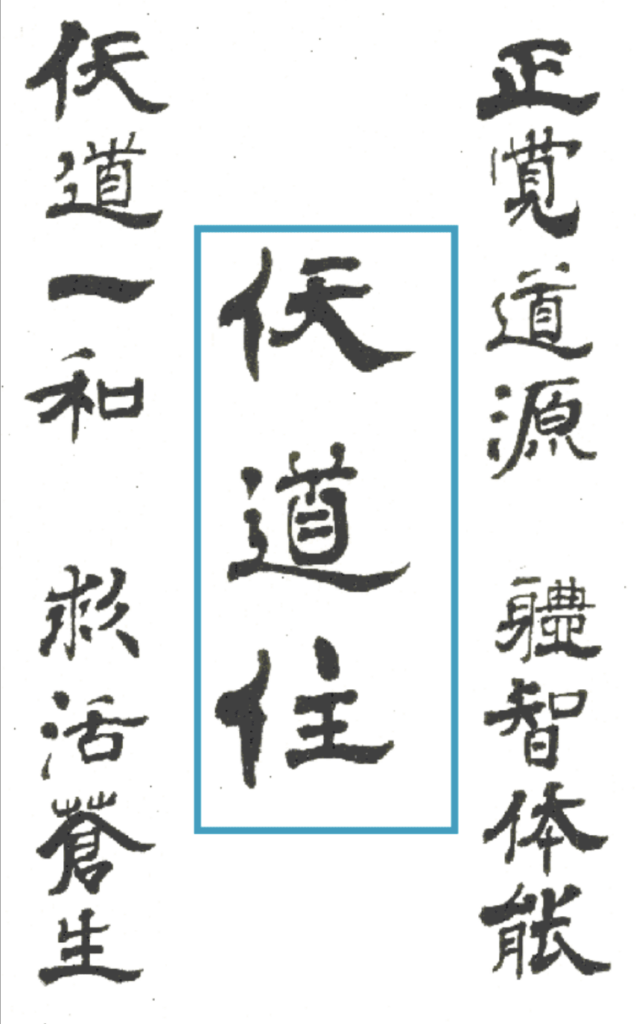 正覺道源 軆智体能
仸道住
仸道一和 救活蒼生